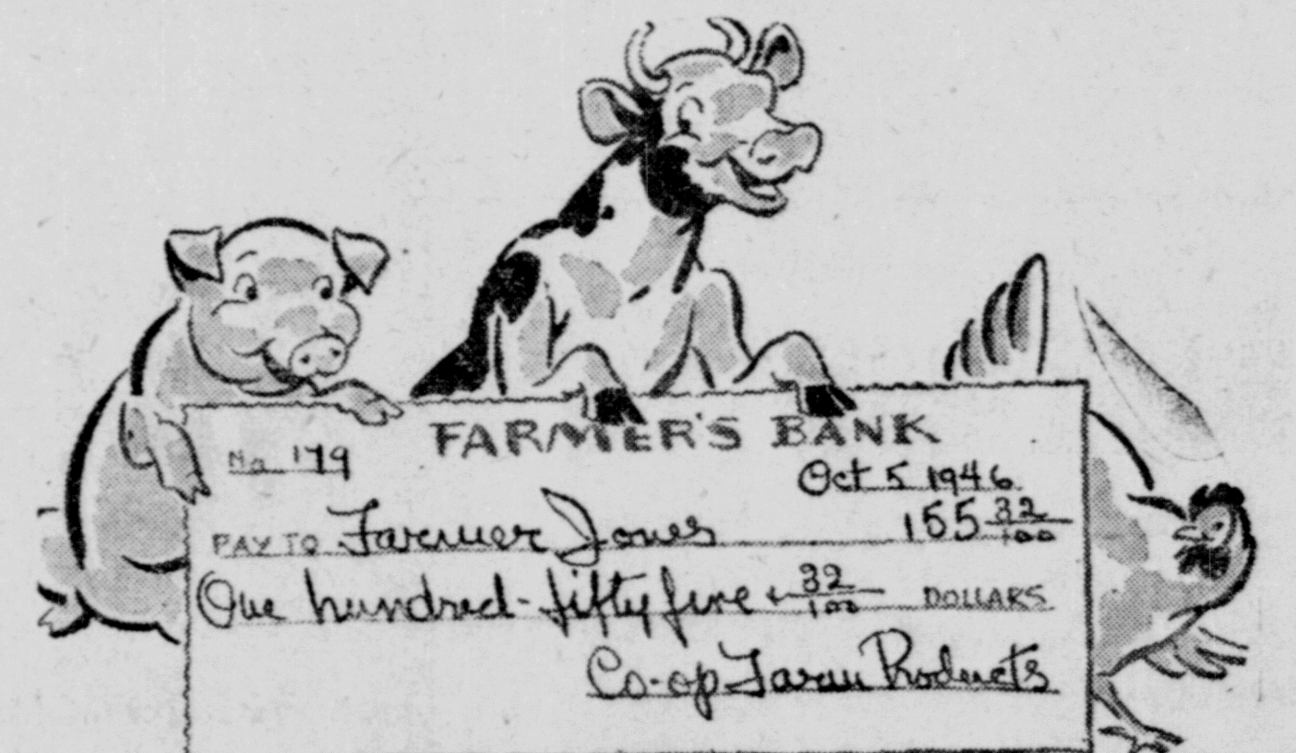 FARMER'S BANK
No. 179
Oct 5 1946
PAY TO Farmer Jones 155 32/100
One hundred-fifty five + 32/100 DOLLARS
Co-op Farm Products